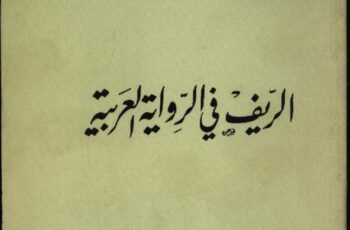 الرّيفْ في الرِّواية العَربيّة